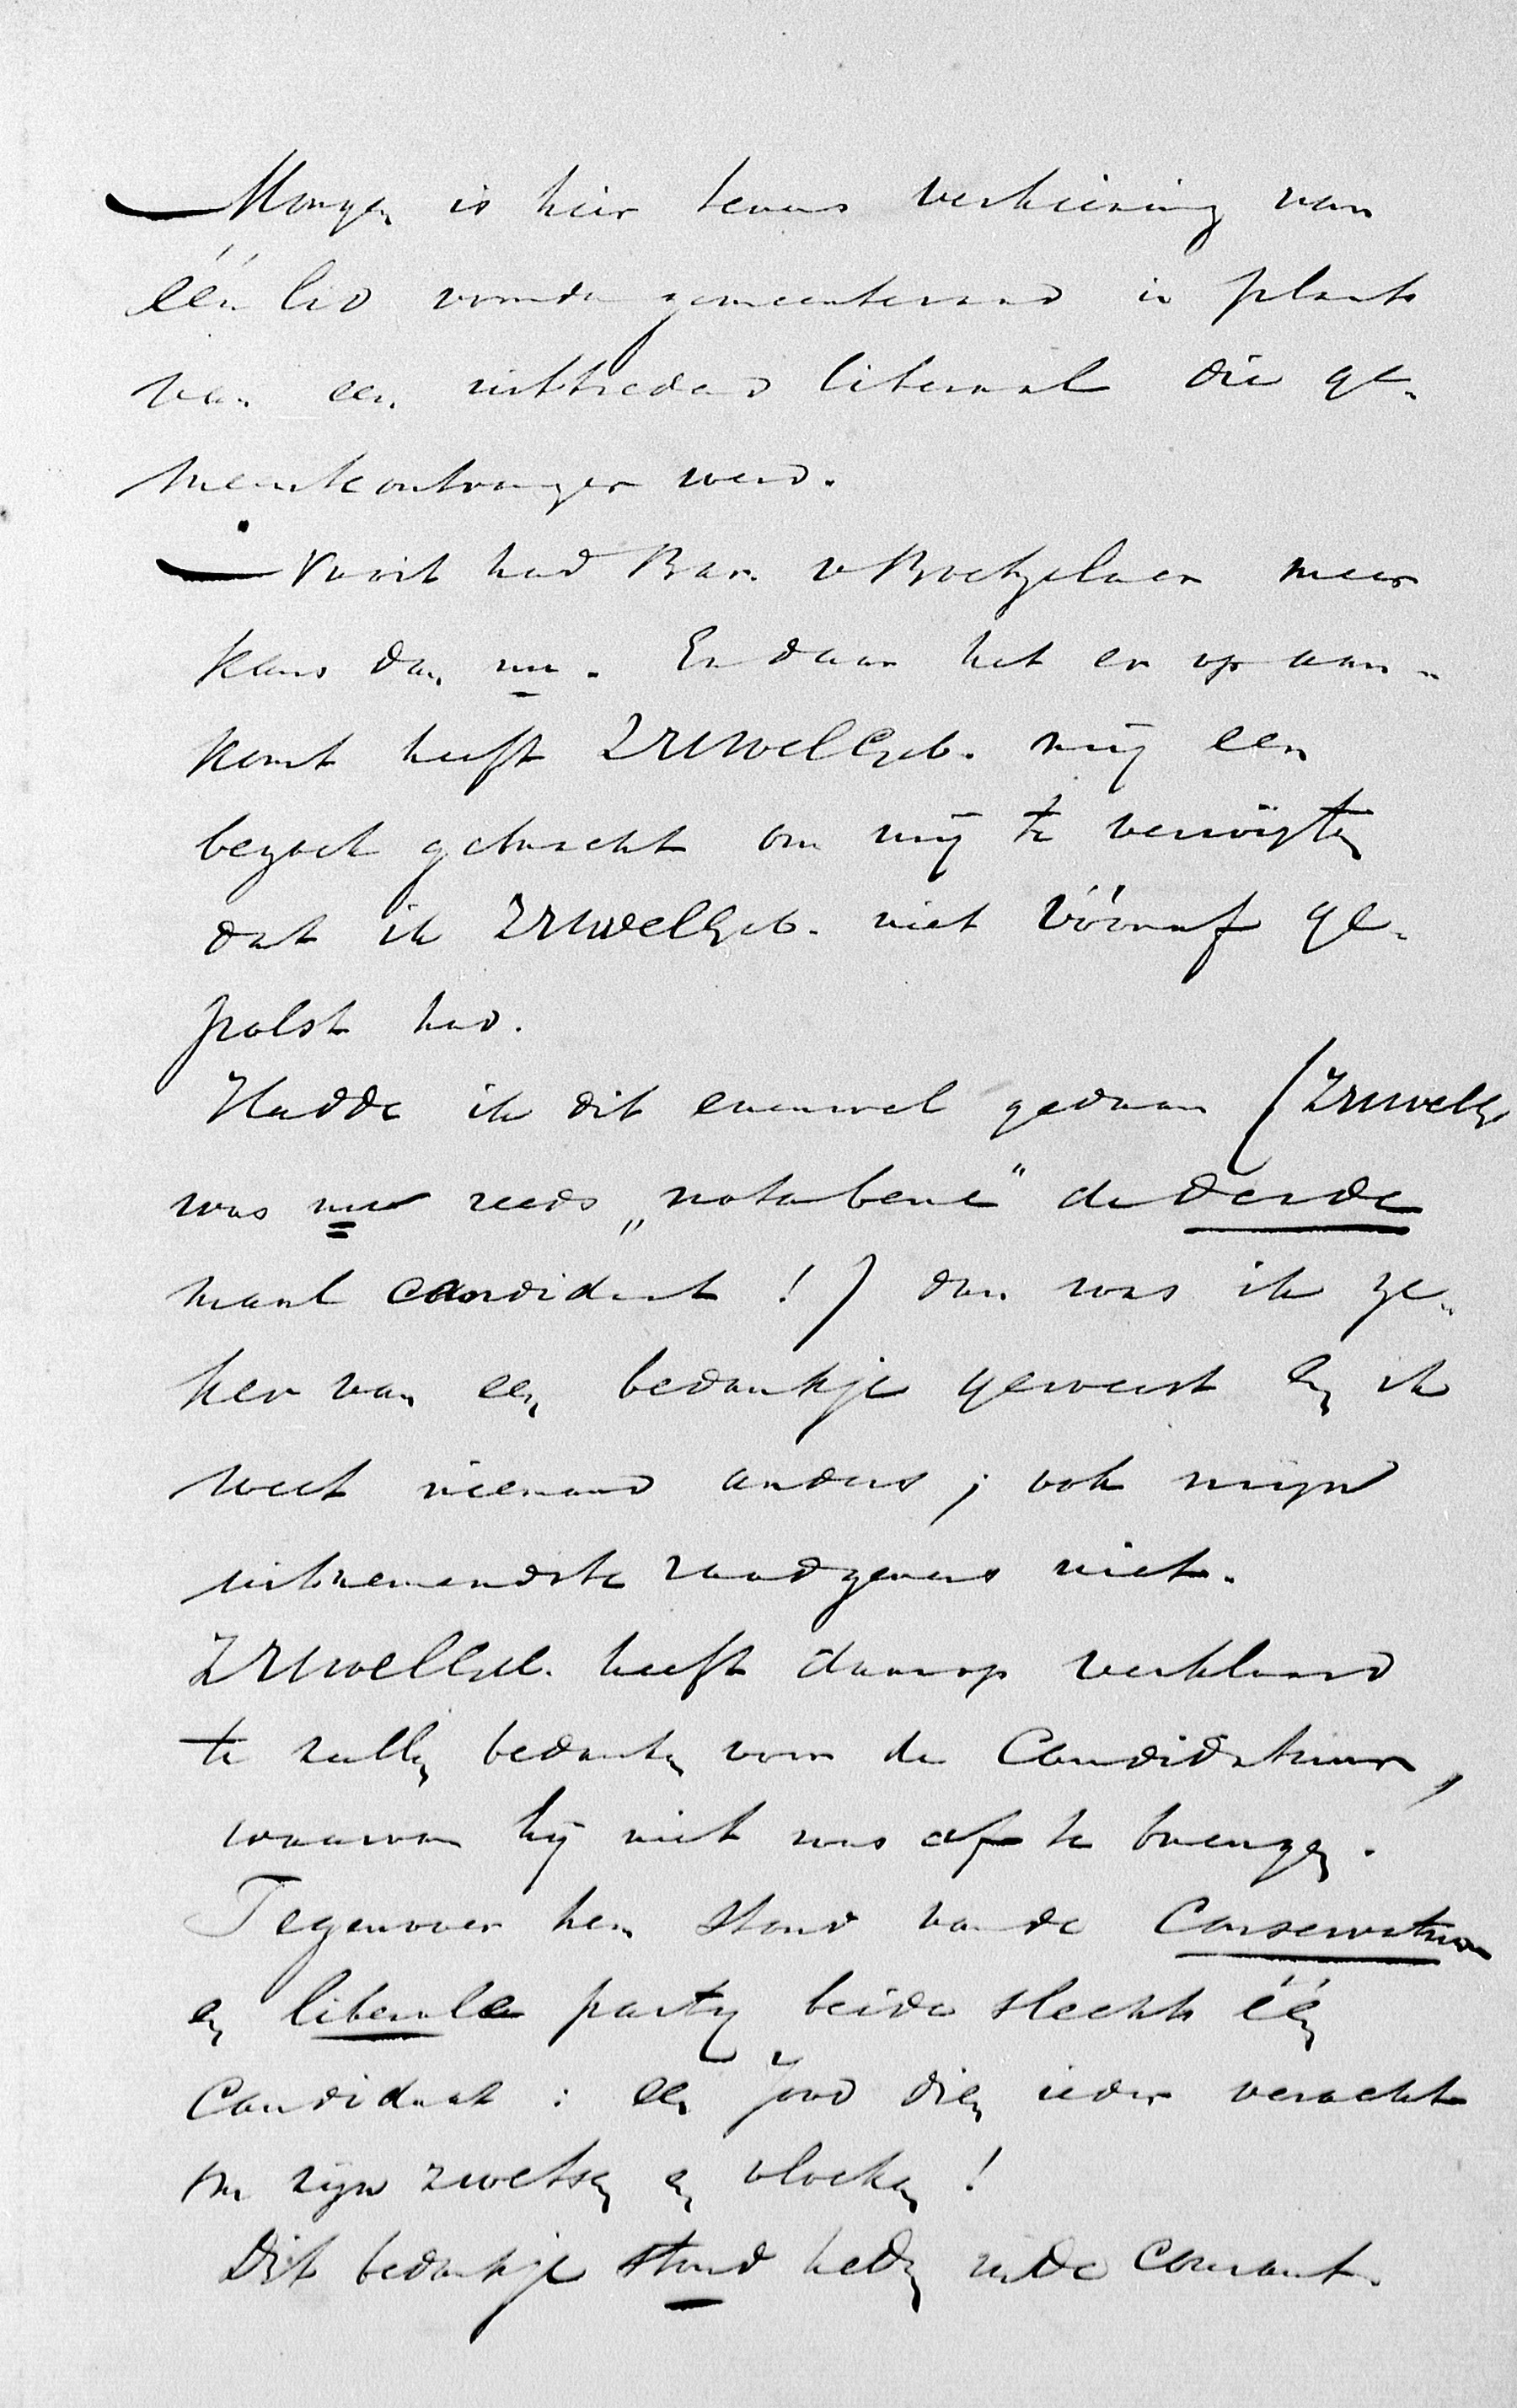 Morgen is hier tevens verkiezing van
één lid voor de gemeenteraad in plaats
van een uittredend liberaal die ge-
meenteontvanger werd.
Nooit had Bar. v Boetzelaer meer
kans dan nu. En daar het er op aan-
komt heeft ZHWelGeb. mij een
bezoek gebracht om mij te verwijten
dat ik ZHWelGeb. niet vóóraf ge-
polst had.
Hadde ik dit evenwel gedaan (ZHWelG
was nu reeds „notabene" de derde
maal candidaat!) dan was ik ze-
ker van een bedankje geweest en ik
weet niemand anders; ook mijn
uitnemendste raadgevers niet.
ZHWelGeb. heeft daarop verklaard
te zullen bedanken voor de Candidatuur,
waarvan hij niet was af te brengen.
Tegenover hem stond van de Conservatieve
en liberale party beide slechts één
Candidaat: een Jood dien ieder veracht
om zijn zwetsen en vloeken!
Dit bedankje stond heden in de Courant.